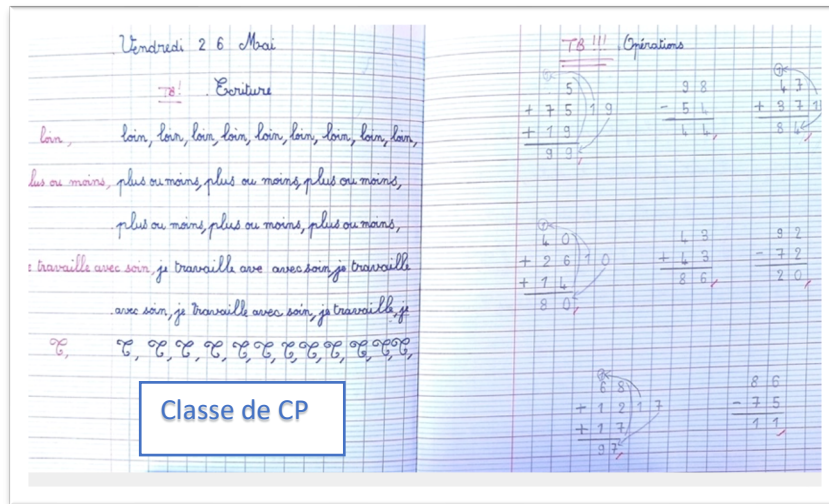 Vendredi 26 Mai
TB! Ecriture
loin, loin, loin, loin, loin, loin, loin, loin, loin, loin,
lus ou moins, plus ou moins, plus ou moins, plus ou moins,
plus ou moins, plus ou moins, plus ou moins,
e travaille avec soin, je travaille ave avec soin, je travaille
avec soin, je travaille avec soin, je travaille, je
Classe de CP
TB!!! Opérations
1
5
+ 75 19
+ 19
99
98
- 54
44
1
47
+ 37 1
84
1
40
+ 26 10
+ 14
80
43
+ 43
86
92
- 72
20
1
68
+ 12 17
+ 17
97
86
- 75
11